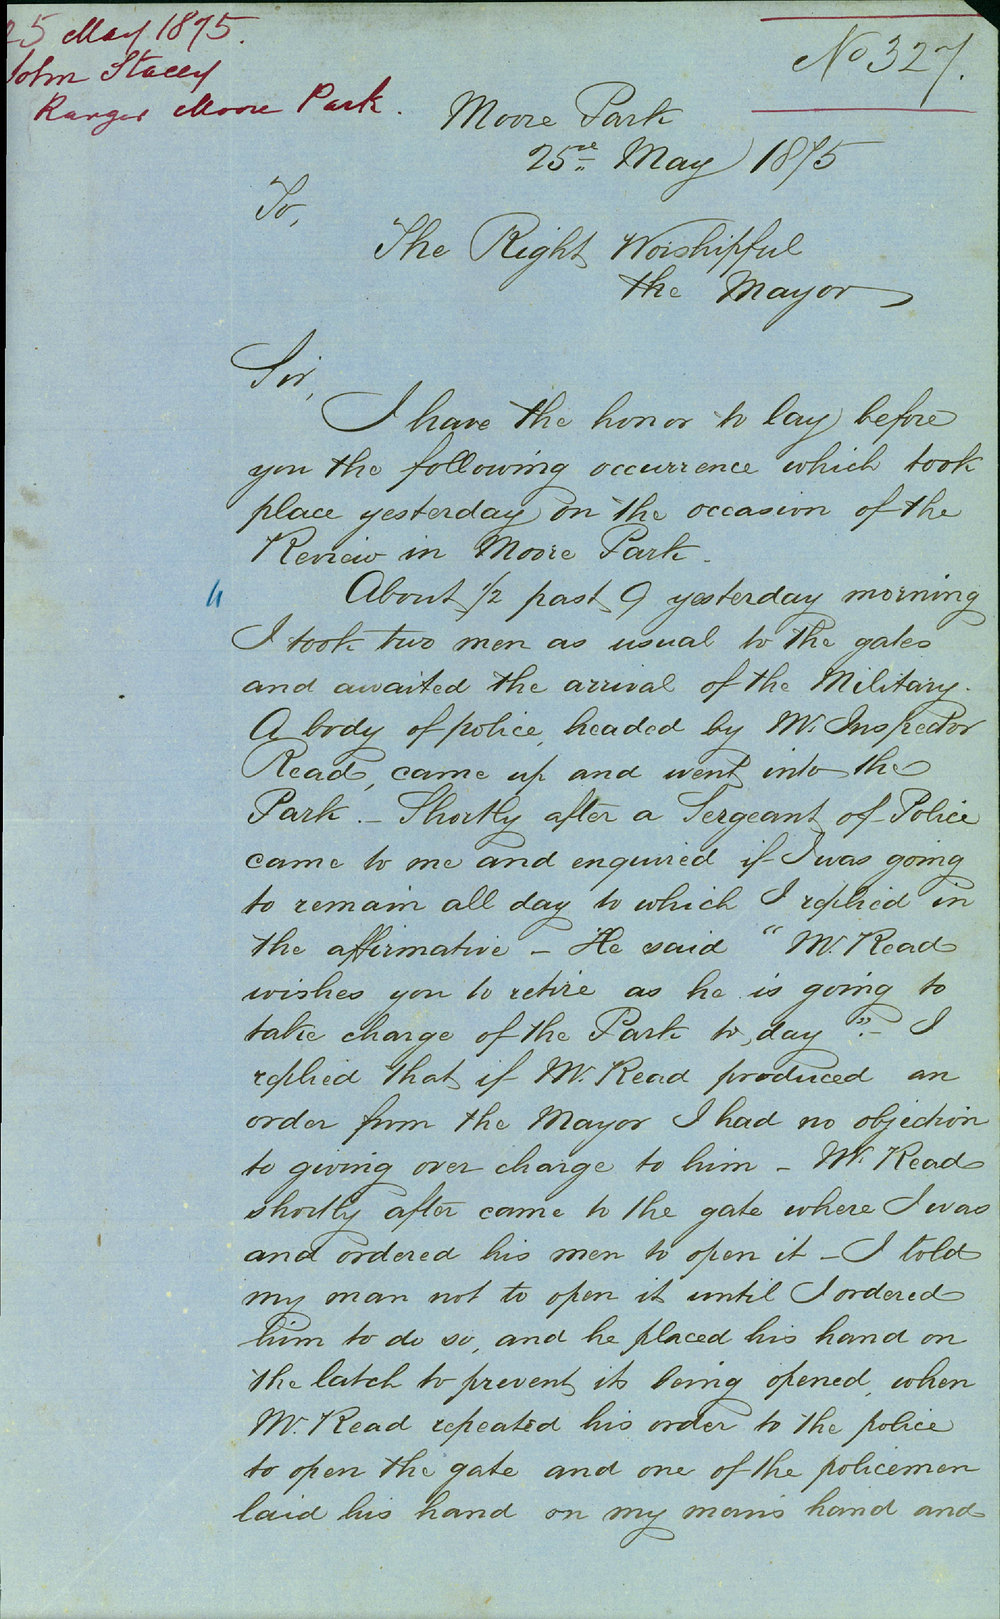 25 May 1875.
John Stacey
Ranger Moore Park.
No 327.
Moore Park
25th May 1875
To,
The Right Worshipful
the Mayor
Sir,
I have the honor to lay before
you the following occurrence which took
place yesterday on the occasion of the
Review in Moore Park.
About 1/2 past 9 yesterday morning
I took two men as usual to the gates
and awaited the arrival of the Military.
A body of police, headed by Mr. Inspector
Read, came up and went into the
Park. - Shortly after a Sergeant of Police
came to me and enquired if I was going
to remain all day to which I replied in
the affirmative - He said "Mr. Read
wishes you to retire as he is going to
take charge of the Park to, day". - I
replied that if Mr. Read produced an
order from the Mayor I had no objection
to giving over charge to him - Mr. Read
shortly after came to the gate where I was
and ordered his men to open it - I told
my man not to open it until I ordered
him to do so, and he placed his hand on
the latch to prevent its being opened, when
Mr. Read repeated his order to the police
to open the gate and one of the policemen
laid his hand on my man's hand and